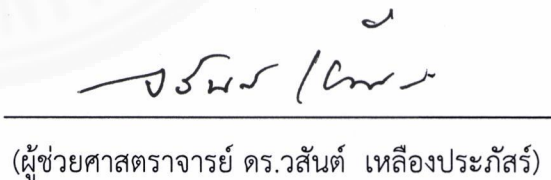 (ผู้ช่วยศาสตราจารย์ ดร.วสันต์ เหลืองประภัสร์)